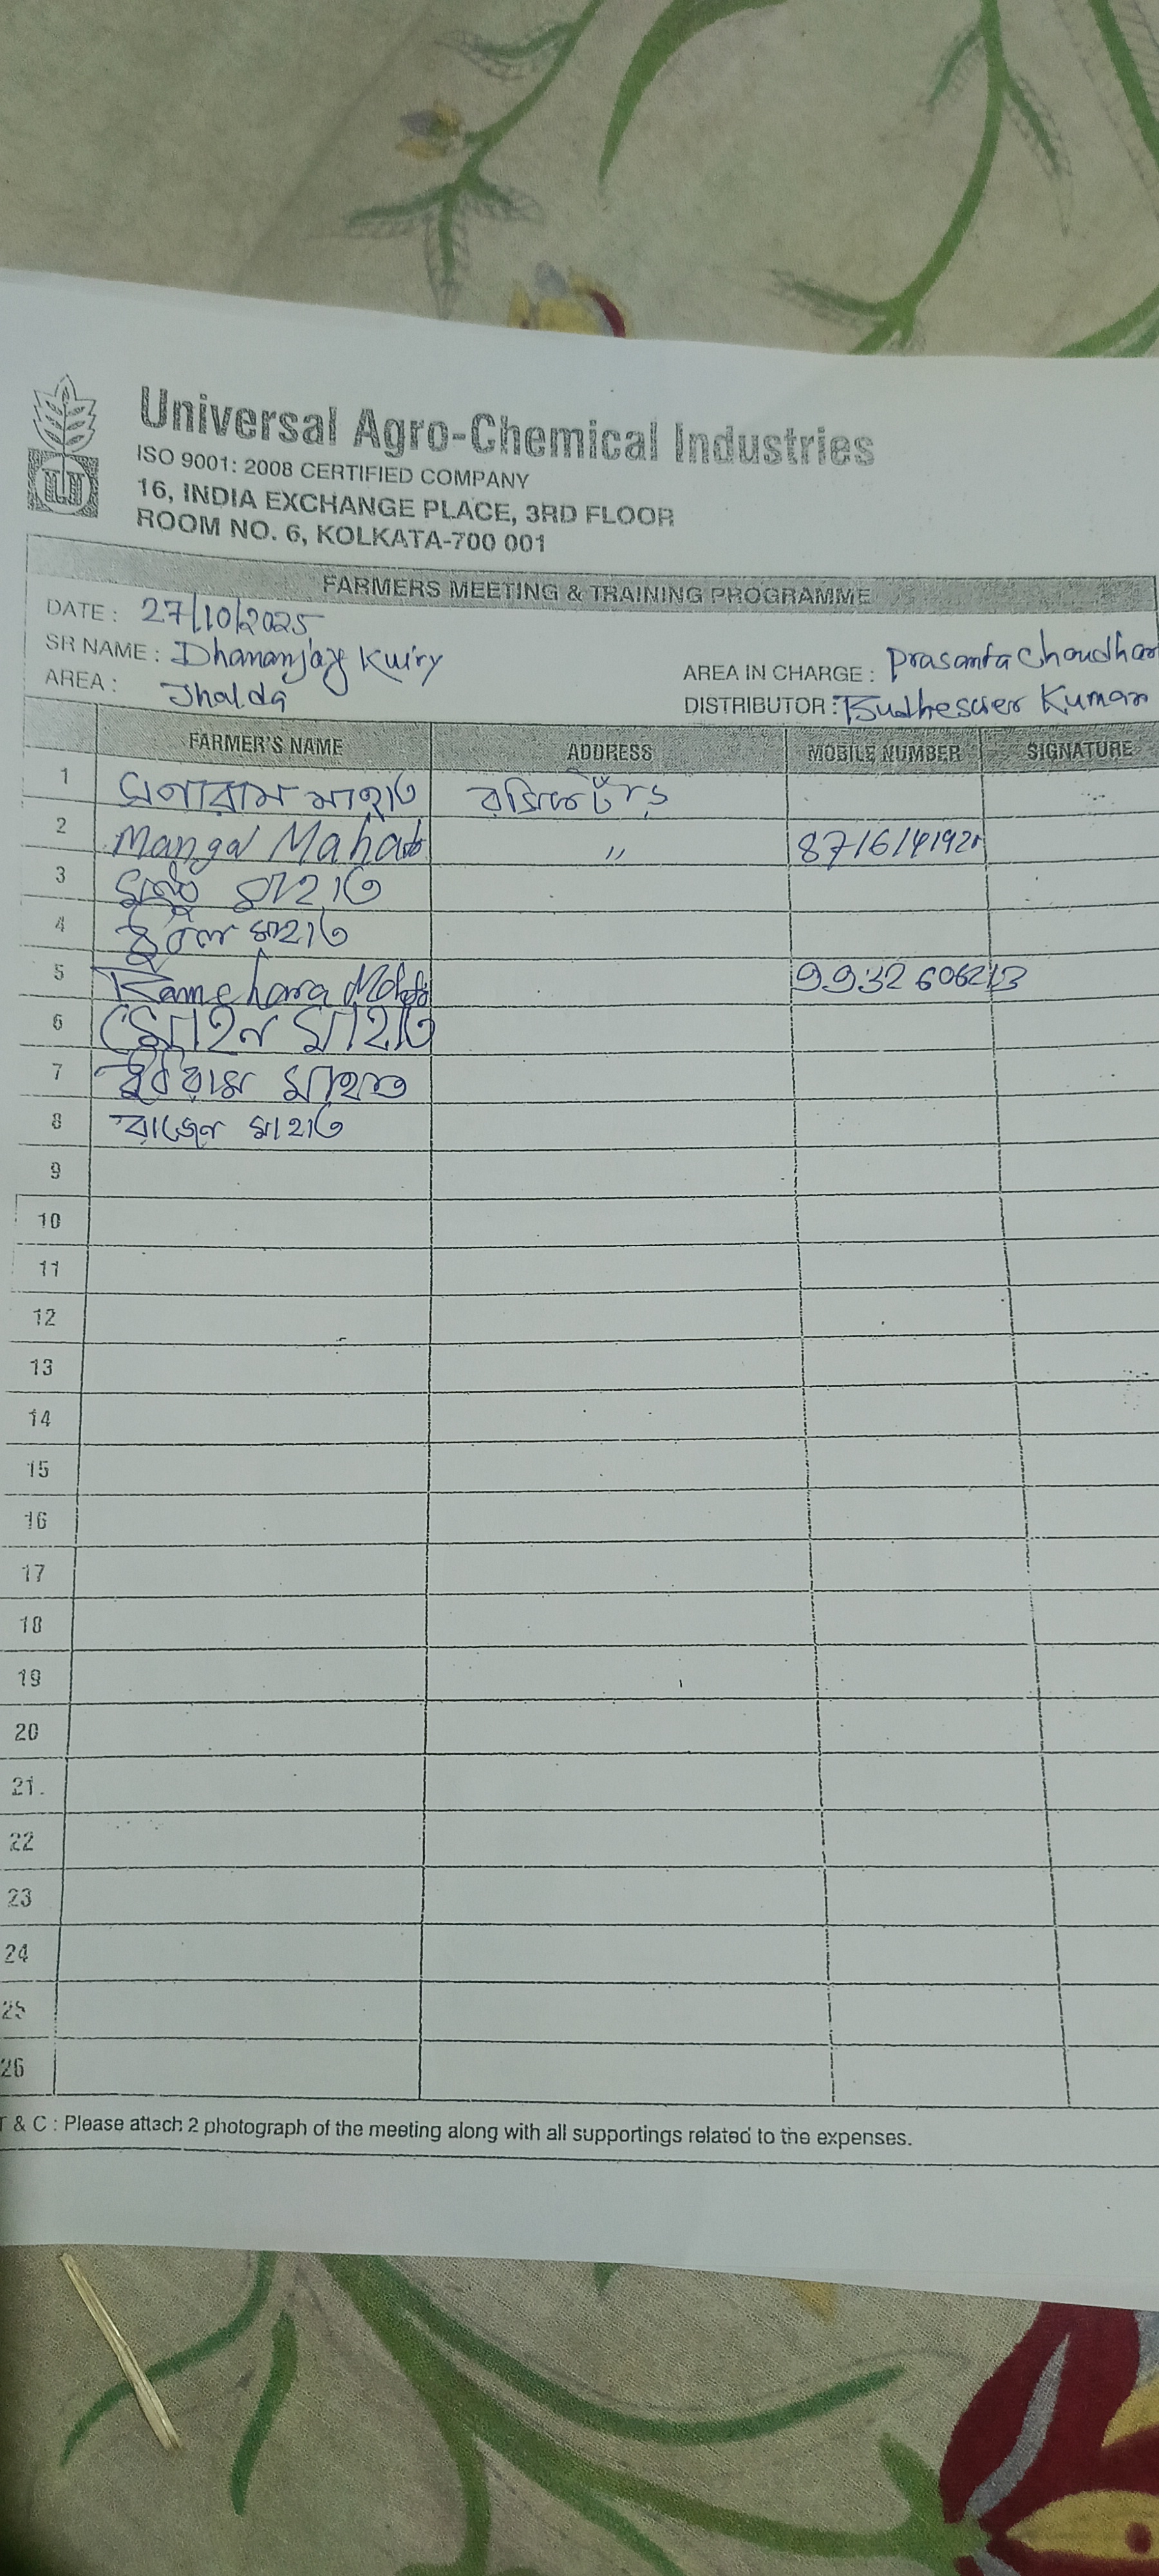 Universal Agro-Chemical Industries
ISO 9001: 2008 CERTIFIED COMPANY
16, INDIA EXCHANGE PLACE, 3RD FLOOR
ROOM NO. 6, KOLKATA-700 001
FARMERS MEETING & TRAINING PROGRAMME
DATE : 27/10/2025
SR NAME : Dhananjay Kuiry AREA IN CHARGE : Prasanta Choudhar
AREA : Jhalda DISTRIBUTOR : Kumar
FARMER'S NAME ADDRESS MOBILE NUMBER SIGNATURE
1 মাহাত
2 Mangal Mahato "
3 মাহাত
4 মাহাত
5 Mahato 9932606213
6 মাহাত
7 মাহাত
8 রাজেন মাহাত
9
10
11
12
13
14
15
16
17
18
19
20
21.
22
23
24
25
26
T & C : Please attach 2 photograph of the meeting along with all supportings related to the expenses.